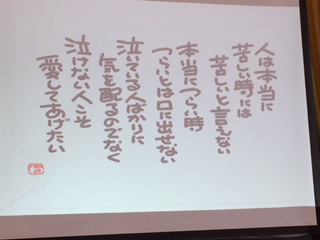 人は本当に
苦しい時には
苦しいと言えない
本当につらい時
つらいとは口に出せない
泣いている人ばかりに
気を配るのでなく
泣けない人こそ
愛してあげたい